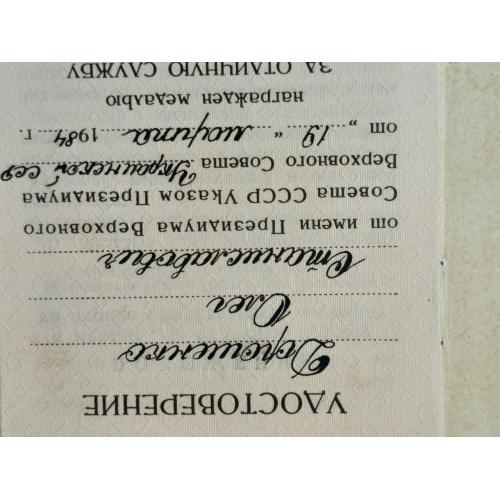 УДОСТОВЕРЕНИЕ
Дорошенко
Олег
Станиславович
от имени Президиума Верховного
Совета СССР Указом Президиума
Верховного Совета Украинской ССР
от „19“ марта 1984 г.
награжден медалью
ЗА ОТЛИЧНУЮ СЛУЖБУ